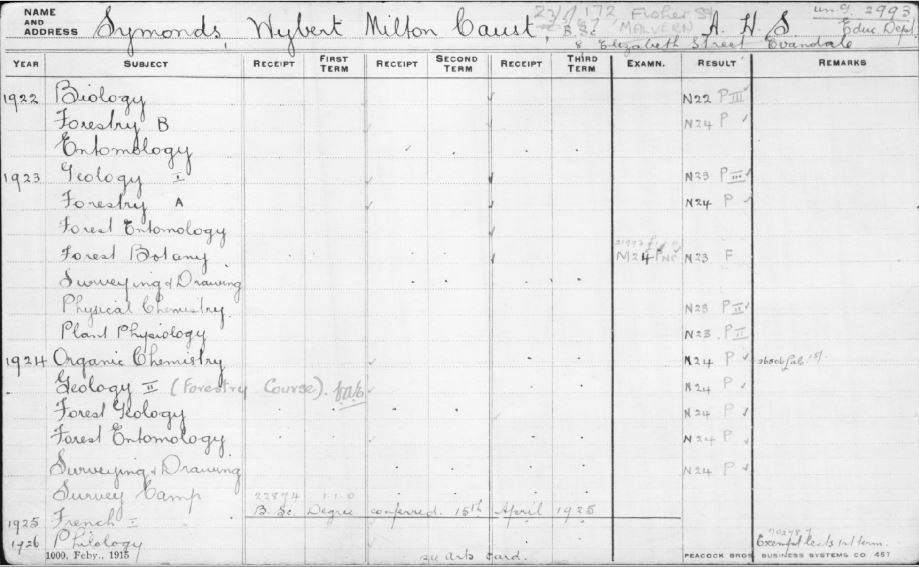 NAME AND ADDRESS Symonds, Wybert Milton Caust, B.Sc. 172 Fisher St MALVERN A. H. S. 2993 Educ. Dept.
8 Elizabeth Street Evandale
YEAR SUBJECT RECEIPT FIRST TERM RECEIPT SECOND TERM RECEIPT THIRD TERM EXAMN. RESULT REMARKS
1922 Biology N22 P III
Forestry B N24 P
Entomology
1923 Geology I N23 P III
Forestry A N24 P
Forest Entomology
Forest Botany M24 N23 F
Surveying & Drawing
Physical Chemistry N23 P II
Plant Physiology N23 P II
1924 Organic Chemistry N24 P
Geology II (Forestry Course). N24 P
Forest Geology N24 P
Forest Entomology N24 P
Surveying & Drawing N24 P
Survey Camp 22874 1.1.0
B. Sc. Degree conferred 15th April 1925
1925 French I
1926 Philology Exempt lects 1st term.
1000, Feby., 1915 arts card. PEACOCK BROS BUSINESS SYSTEMS CO 457